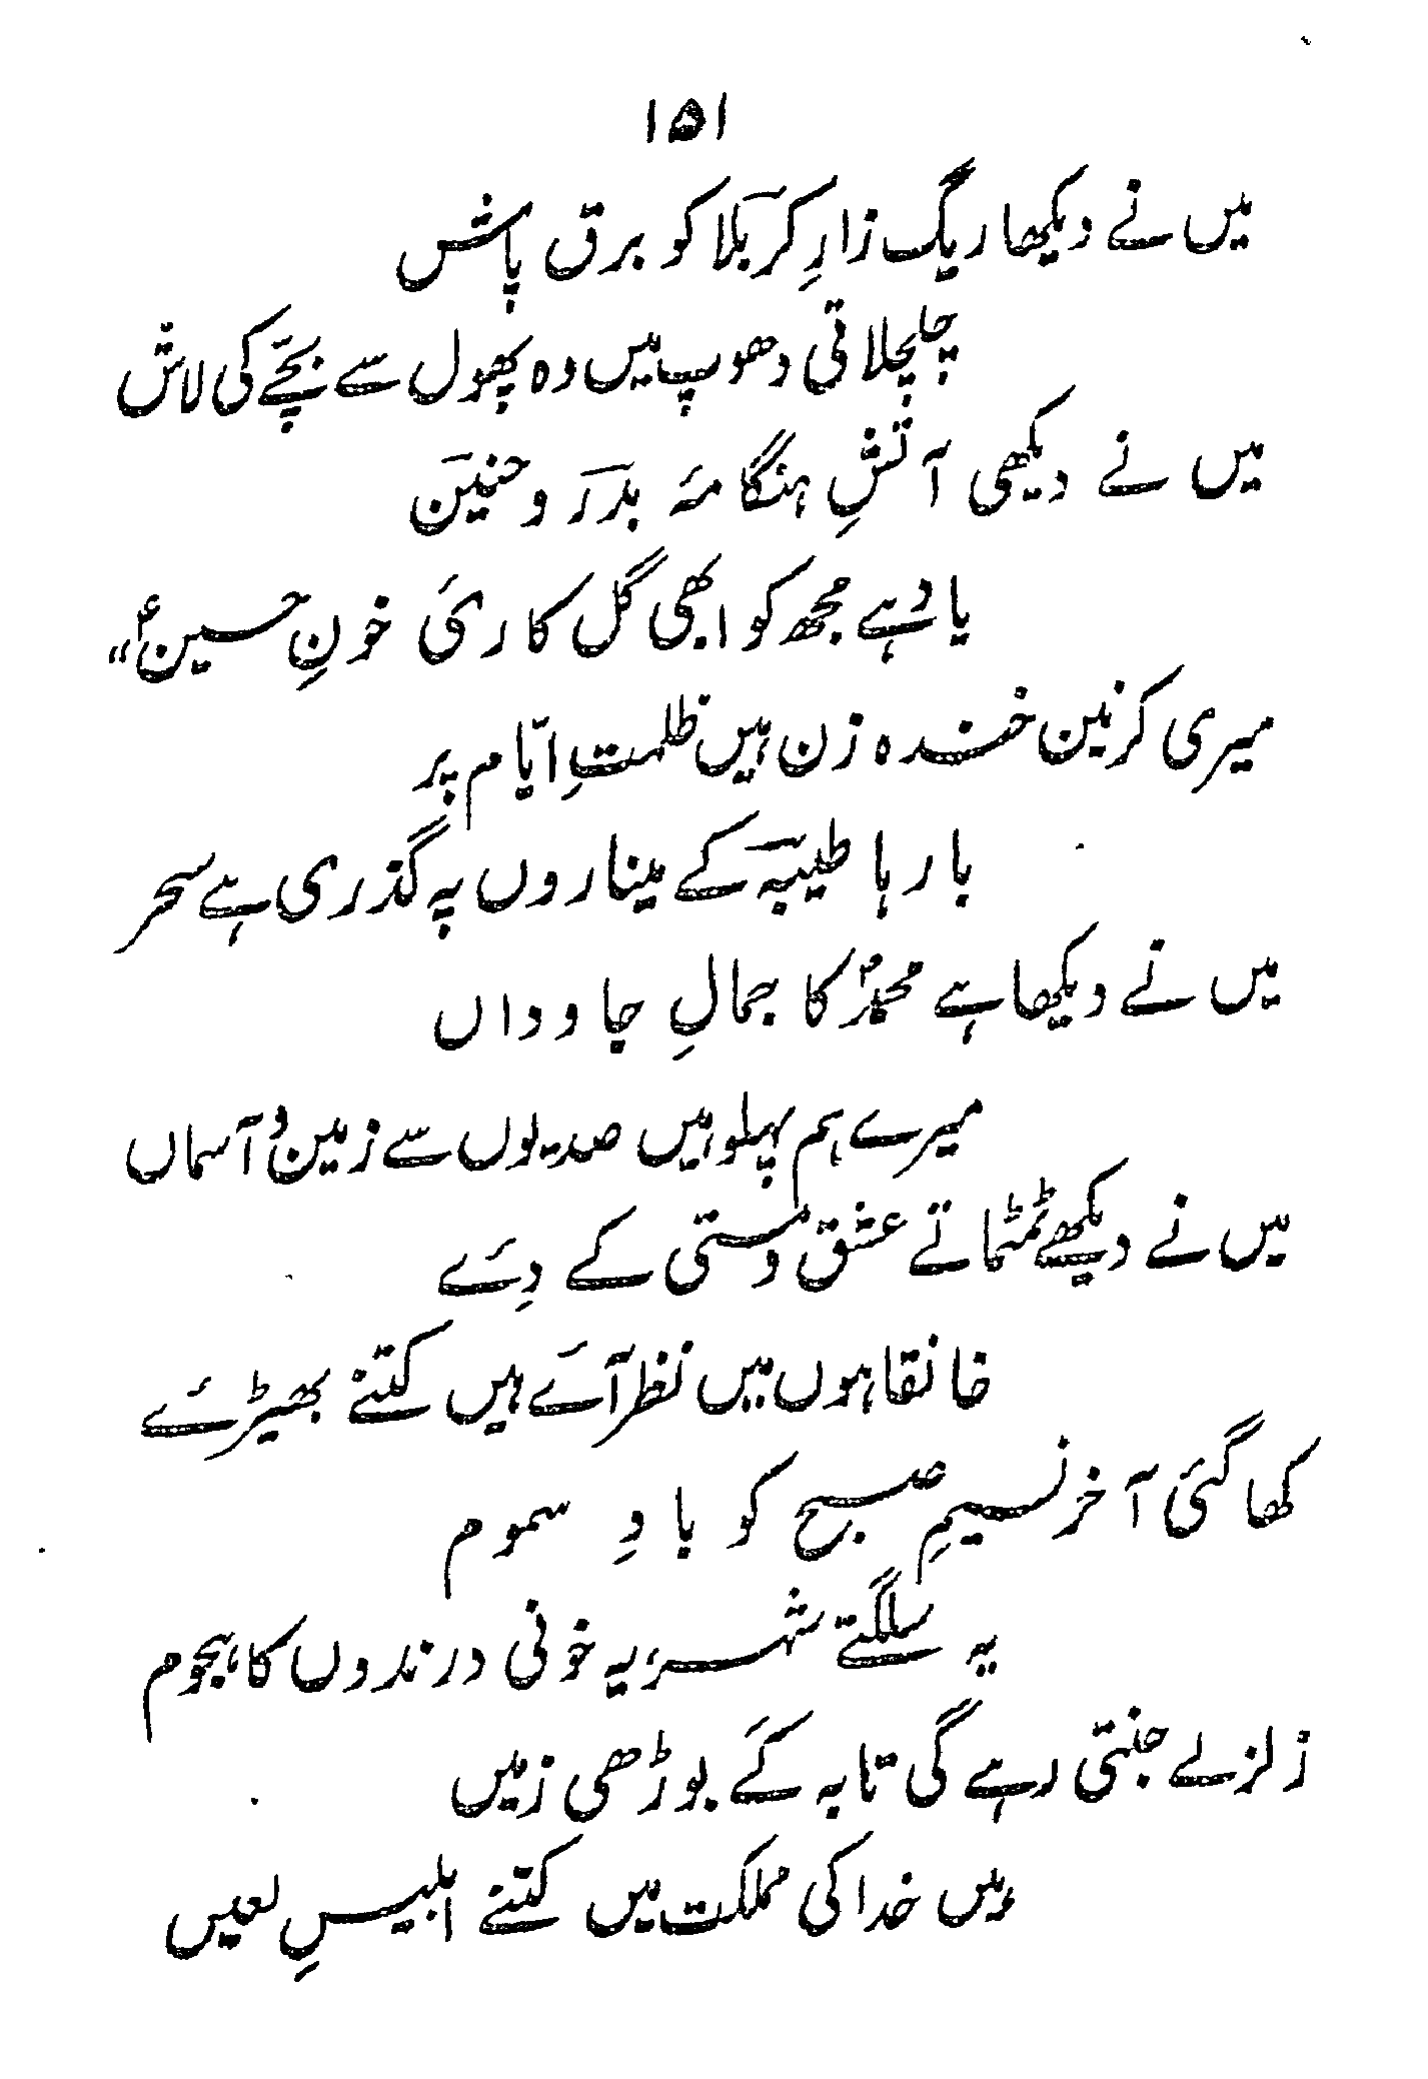 ۱۵۱
میں نے دیکھا ریگ زارِ کربلا کو برق پاش
چلچلاتی دھوپ میں وہ پھول سے بچّے کی لاش
میں نے دیکھی آتشِ ہنگامۂ بدر و حنین
یاد ہے مجھ کو ابھی گل کاریٔ خونِ حسینؑ،،
میری کرنیں خندہ زن ہیں ظلمتِ ایّام پر
بارہا طیبہ کے میناروں پہ گذری ہے سحر
میں نے دیکھا ہے محمدؐ کا جمالِ جاوداں
میرے ہم پہلو ہیں صدیوں سے زمین و آسماں
میں نے دیکھے ٹمٹماتے عشق و مستی کے دِئے
خانقاہوں میں نظر آئے ہیں کتنے بھیڑئے
کھا گئی آخر نسیمِ صبح کو بادِ سموم
یہ سلگتے شہر، یہ خونی درندوں کا ہجوم
زلزلے جنتی رہے گی تابہ کَے بوڑھی زمیں
ہیں خدا کی مملکت میں کتنے ابلیسِ لعیں